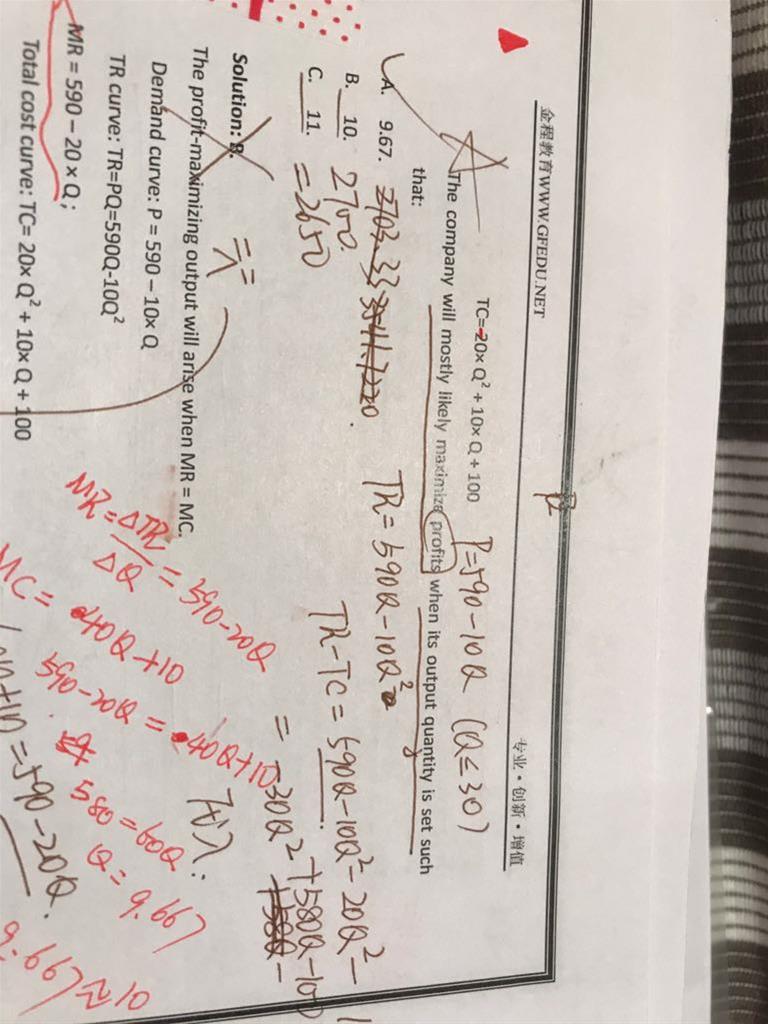 金程教育WWW.GFEDU.NET
专业·创新·增值
TC=20×Q²+10×Q+100
P=590-10Q (Q≤30)
The company will mostly likely maximize profits when its output quantity is set such
that:
TR=590Q-10Q²
A. 9.67.
B. 10. 2700.
C. 11. =2650
TR-TC=590Q-10Q²-20Q²-
=-30Q²+580Q-100
Solution: B.
The profit-maximizing output will arise when MR = MC.
Demand curve: P = 590 – 10× Q
TR curve: TR=PQ=590Q-10Q²
MR = 590 – 20 × Q;
Total cost curve: TC= 20× Q² + 10× Q + 100
MR=ΔTR/ΔQ=590-20Q
MC=40Q+10
590-20Q=40Q+10
580=60Q
Q=9.667
=590-20Q.